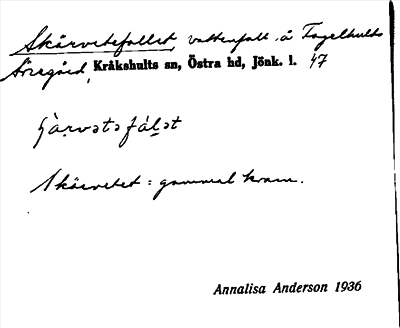 Skärvetefallet, vattenfall å Fagelhults
Sörgård, Kråkshults sn, Östra hd, Jönk. l. 47
Skärvetet = gammal kvarn.
Annalisa Anderson 1936